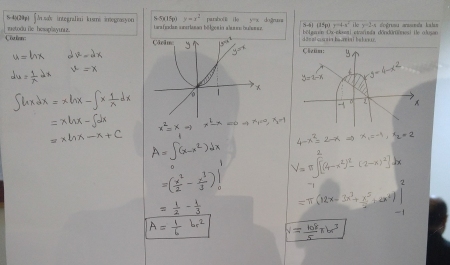 S-4)(20p) ∫lnxdx integralini kısmi integrasyon
metodu ile hesaplayınız.
Çözüm:
u = lnx dv = dx
du = 1/x dx v = x
∫lnxdx = xlnx - ∫x 1/x dx
= xlnx - ∫dx
= xlnx - x + C
S-5)(15p) y = x² parabolü ile y=x doğrusu
tarafından sınırlanan bölgenin alanını bulunuz.
Çözüm:
y=x²
y=x
0 1 x
x² = x ⇒ x²-x = 0 ⇒ x₁=0, x₂=1
A = ∫₀¹ (x-x²) dx
= (x²/2 - x³/3) |₀¹
= 1/2 - 1/3
A = 1/6 br²
S-6) (15p) y=4-x² ile y=2-x doğrusu arasında kalan
bölgenin Ox-ekseni etrafında döndürülmesi ile oluşan
Çözüm:
y
y=2-x
y=4-x²
-1 2 x
4-x² = 2-x ⇒ x₁=-1, x₂=2
V = π ∫₋₁² [(4-x²)² - (2-x)²] dx
V = 108/5 π br³